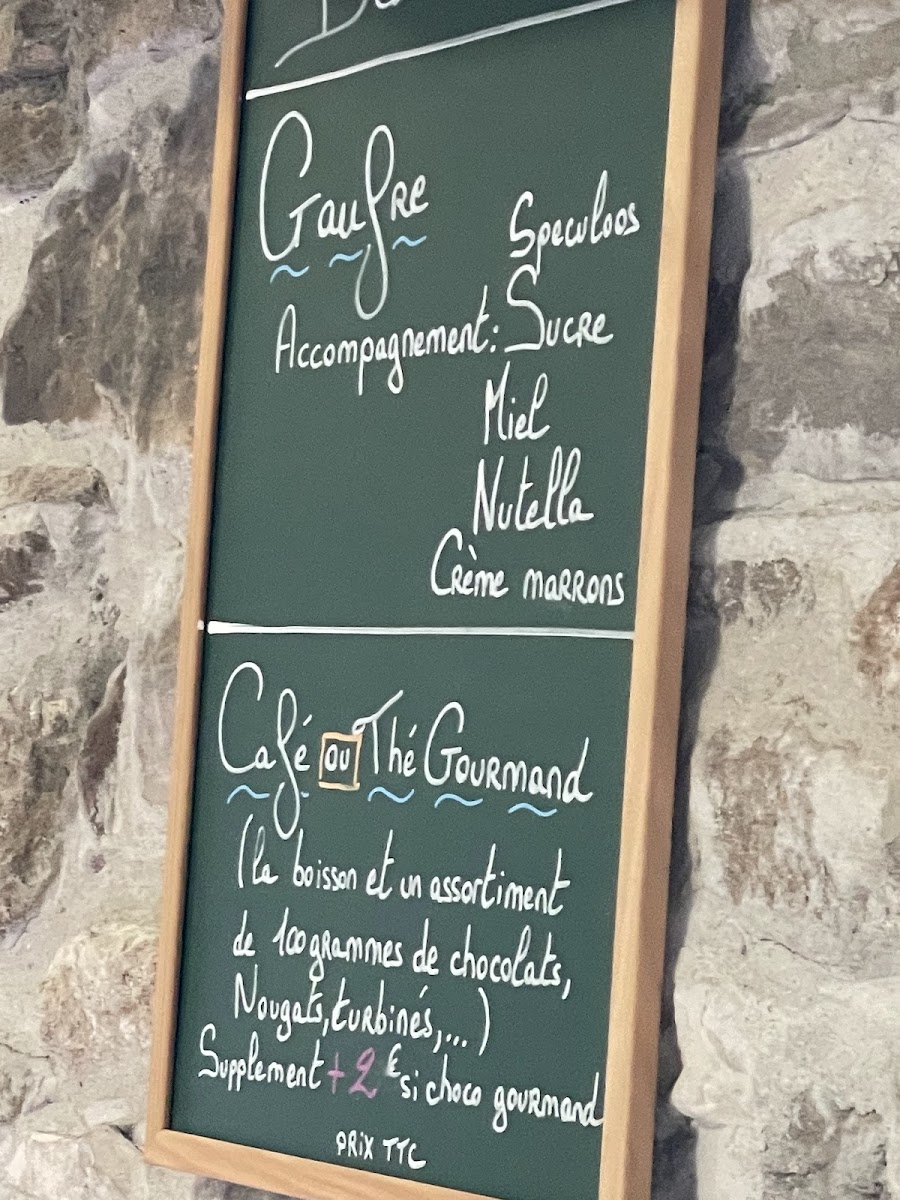 Gaufre
Speculoos
Accompagnement: Sucre
Miel
Nutella
Crème marrons
Café ou Thé Gourmand
(la boisson et un assortiment
de 100 grammes de chocolats,
Nougats, turbinés,...)
Supplement +2€ si choco gourmand
PRIX TTC